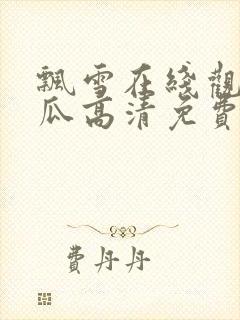 飄雪在綫觀
瓜高清免費
費丹丹